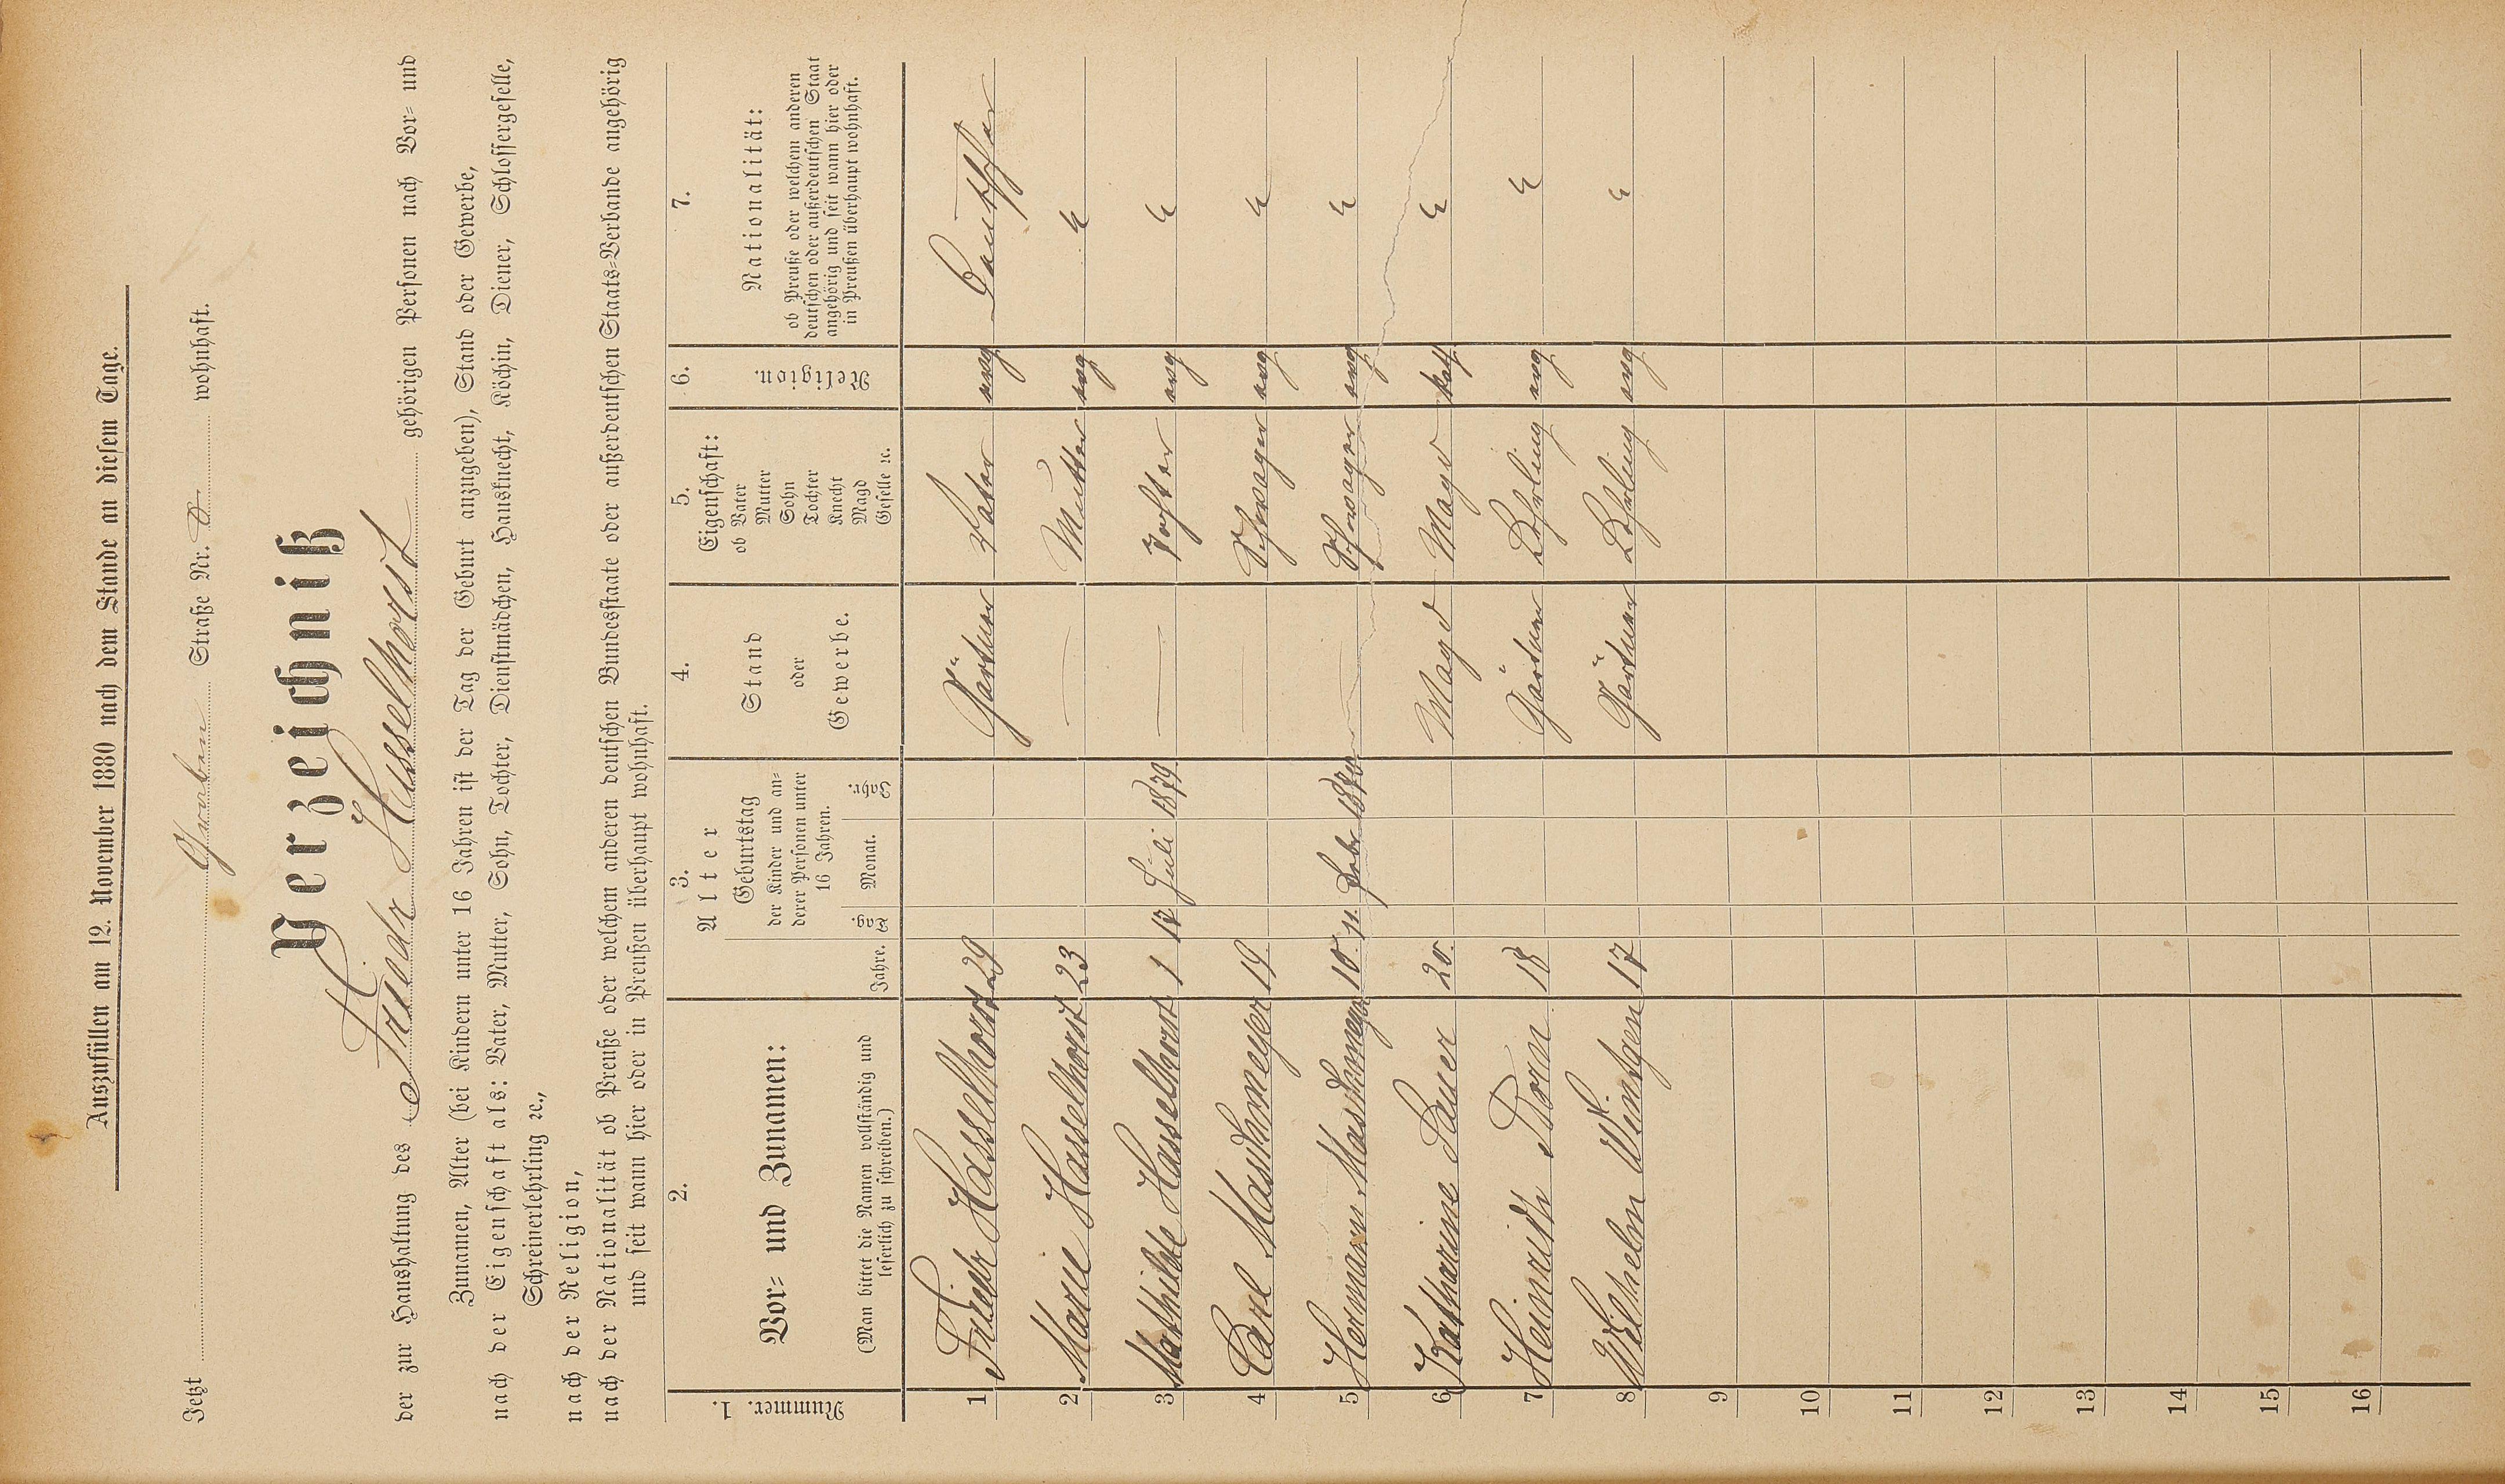 Auszufüllen am 12. November 1880 nach dem Stande an diesem Tage.
Jetzt Straße Nr. wohnhaft.
Verzeichniß
der zur Haushaltung des Friedr Hasselhorst gehörigen Personen nach Vor- und
Zunamen, Alter (bei Kindern unter 16 Jahren ist der Tag der Geburt anzugeben), Stand oder Gewerbe,
nach der Eigenschaft als: Vater, Mutter, Sohn, Tochter, Dienstmädchen, Hausknecht, Köchin, Diener, Schlossergeselle,
Schreinerlehrling ꝛc.,
nach der Religion,
nach der Nationalität ob Preuße oder welchem anderen deutschen Bundesstaate oder außerdeutschen Staats-Verbande angehörig
und seit wann hier oder in Preußen überhaupt wohnhaft.
1. Nummer.
2. Vor- und Zunamen:
(Man bittet die Namen vollständig und
leserlich zu schreiben.)
3. Alter
Jahre.
Geburtstag
der Kinder und an-
derer Personen unter
16 Jahren.
Tag. Monat. Jahr.
4. Stand
oder
Gewerbe.
5. Eigenschaft:
ob Vater
Mutter
Sohn
Tochter
Knecht
Magd
Geselle ꝛc.
6. Religion.
7. Nationalität:
ob Preuße oder welchem anderen
deutschen oder außerdeutschen Staat
angehörig und seit wann hier oder
in Preußen überhaupt wohnhaft.
1 Friedr Hasselhorst 29 Gärtner Vater evg
2 Marie Hasselhorst 23 — Mutter evg "
3 Mathilde Hasselhorst 1 17 Juli 1879 — Tochter evg "
4 Carl 19 — Schwager evg "
5 Hermann 10 11. Febr 1870 — Schwager evg "
6 Katharine Bauer 20. Magd Magd kath "
7 Heinrich Dorn 18 Gärtner Lehrling evg "
8 Wilhelm Wintgen 17 Gärtner Lehrling evg "
9
10
11
12
13
14
15
16